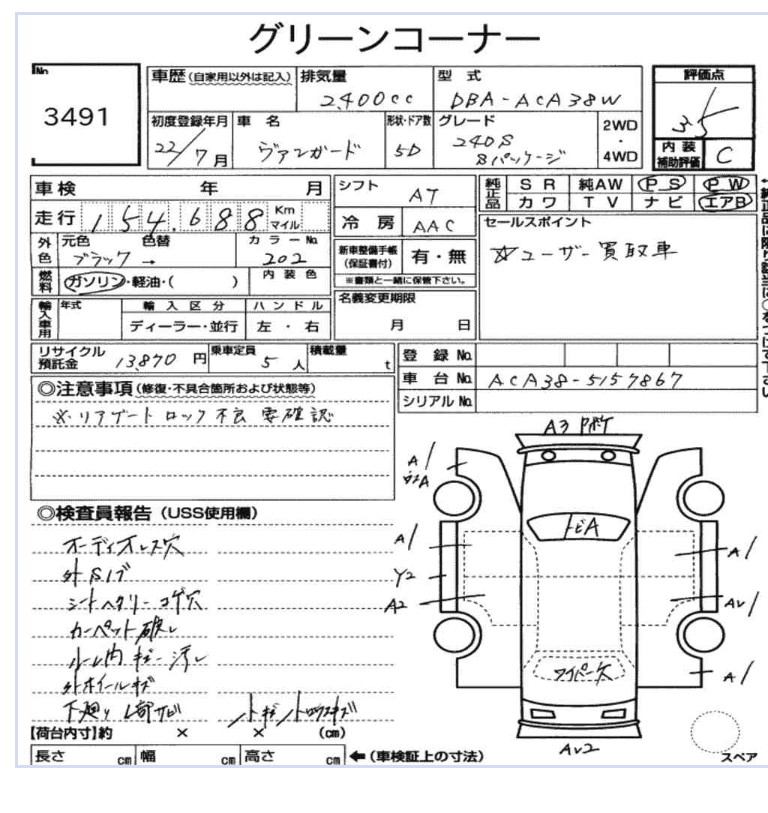 グリーンコーナー
No
3491
車歴(自家用以外は記入)
排気量
2400cc
型式
DBA-ACA38W
評価点
3.5
初度登録年月
22/7月
車名
ヴァンガード
形状・ドア数
5D
グレード
240S
Sパッケージ
2WD
・
4WD
内装
補助評価
C
車検 年 月
シフト
AT
純正品
SR 純AW PS PW
カワ TV ナビ エアB
走行 154,688 Km
マイル
冷房
AAC
セールスポイント
☆ユーザー買取車
外色
元色 色替
ブラック →
カラーNo.
202
新車整備手帳
(保証書付)
有・無
※書類と一緒に保管下さい。
燃料
ガソリン・軽油・( )
内装色
名義変更期限
月 日
輸入車用
年式
輸入区分
ディーラー・並行
ハンドル
左・右
リサイクル
預託金
13,870円
乗車定員
5人
積載量
t
登録No.
車台No.
ACA38-5157867
シリアルNo.
◎注意事項(修復・不具合箇所および状態等)
※リアゲートロック不良 要確認
◎検査員報告(USS使用欄)
オーディオレス穴
外Sイブ
シートヘタリー コゲ穴
カーペット破レ
ルーム内キズー汚レ
外ホイールキズ
下廻りL寄サビ
A3
A1
トビA
A1
Y2
A2
A1
AU1
ワイパー欠
A1
AU2
スペア
【荷台内寸】約 × × (cm)
長さ cm 幅 cm 高さ cm ←(車検証上の寸法)